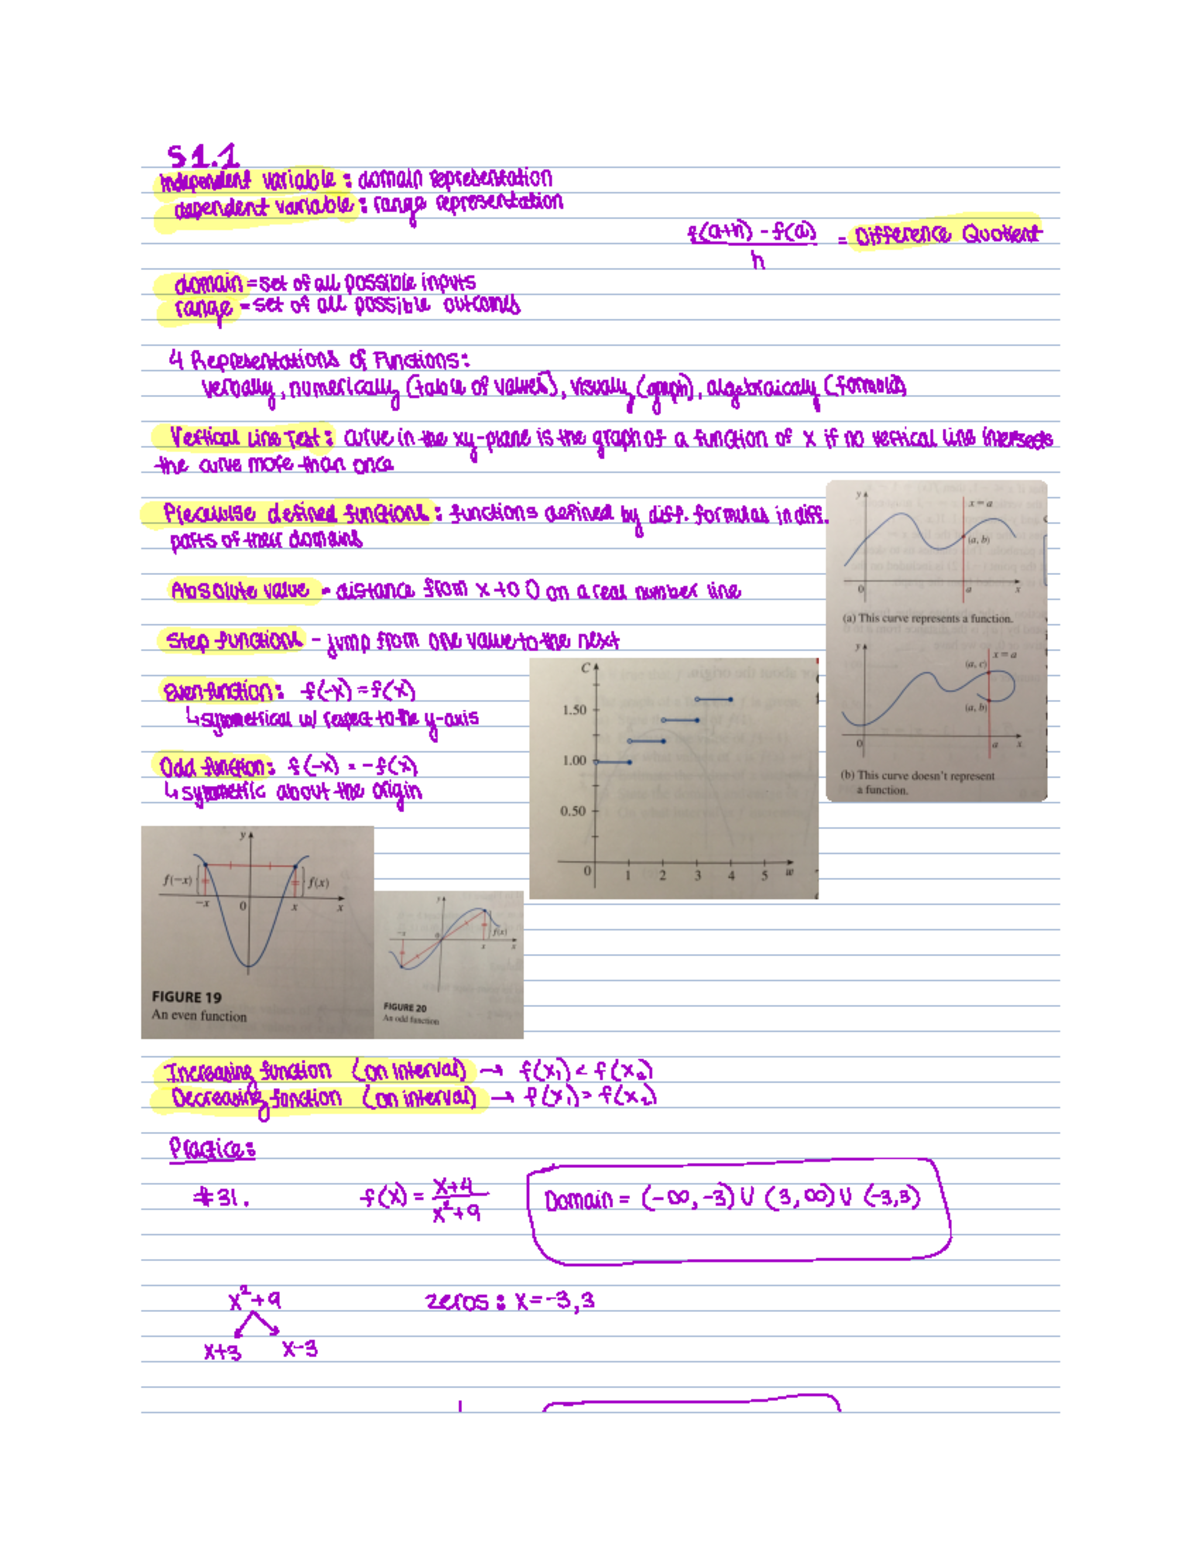 S1.1
independent variable: domain representation
dependent variable: range representation
f(a+h) - f(a) / h = Difference Quotient
domain = set of all possible inputs
range = set of all possible outcomes
4 Representations of Functions:
verbally, numerically (table of values), visually (graph), algebraically (formula)
Vertical Line Test: curve in the xy-plane is the graph of a function of x if no vertical line intersects
the curve more than once
Piecewise defined functions: functions defined by diff. formulas in diff.
parts of their domains
Absolute value - distance from x to 0 on a real number line
Step functions - jump from one value to the next
Even function: f(-x) = f(x)
↳ symmetrical w/ respect to the y-axis
Odd function: f(-x) = -f(x)
↳ symmetric about the origin
y
x = a
(a, b)
0
a
x
(a) This curve represents a function.
y
x = a
(a, c)
(a, b)
0
a
x
(b) This curve doesn't represent
a function.
C
1.50
1.00
0.50
0 1 2 3 4 5 w
y
f(-x)
f(x)
-x 0 x x
FIGURE 19
An even function
y
-x 0
f(x)
x x
FIGURE 20
An odd function
Increasing function (on interval) → f(x₁) < f(x₂)
Decreasing function (on interval) → f(x₁) > f(x₂)
Practice:
#31. f(x) = x+4 / x²+9 Domain = (-∞, -3) ∪ (3, ∞) ∪ (-3,3)
x²+9 zeros: x = -3, 3
x+3 x-3